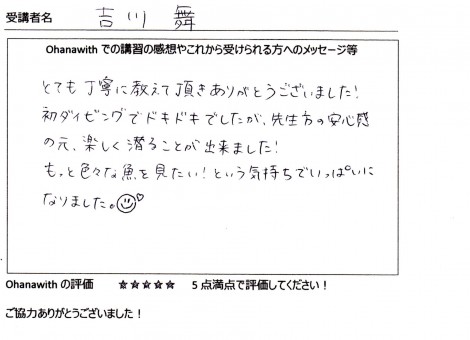 受講者名 吉川 舞
Ohanawith での講習の感想やこれから受けられる方へのメッセージ等
とても丁寧に教えて頂きありがとうございました!
初ダイビングでドキドキでしたが、先生方の安心感
の元、楽しく潜ることが出来ました!
もっと色々な魚を見たい!という気持ちでいっぱいに
なりました。
Ohanawith の評価 ☆☆☆☆☆ 5点満点で評価してください!
ご協力ありがとうございました!